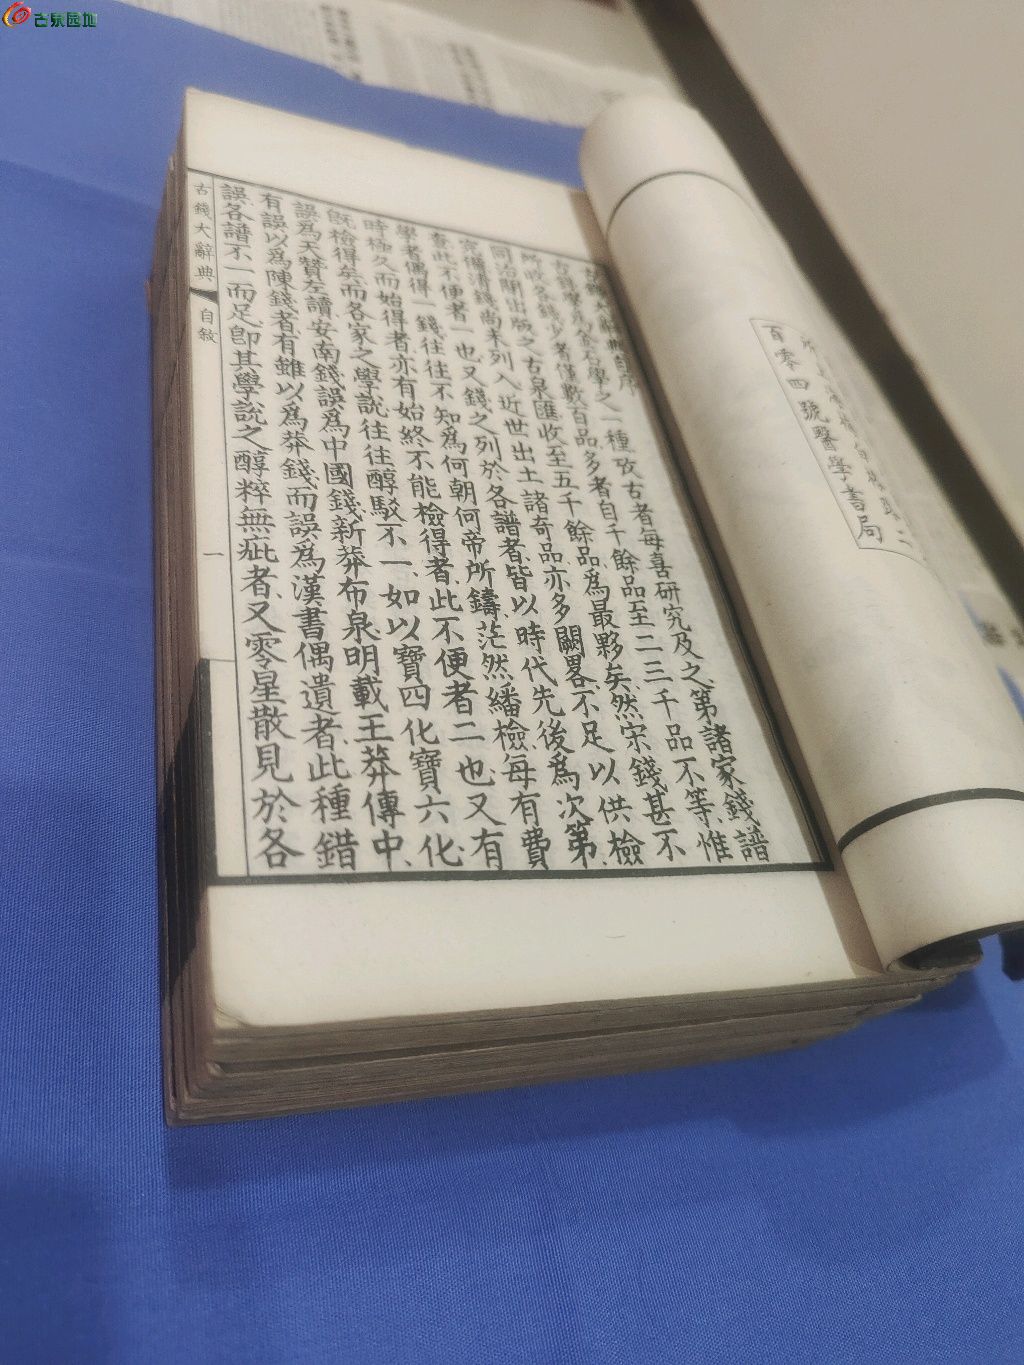 古泉园地
百零四號醫學書局
古錢大辭典自序
古錢學為金石學之一種攷古者每喜研究及之第諸家錢譜
所收各錢少者僅數百品多者自千餘品至二三千品不等惟
同治間出版之古泉匯收至五千餘品為最夥矣然宋錢甚不
完備清錢尚未列入近世出土諸奇品亦多闕畧不足以供檢
查此不便者一也又錢之列於各譜者皆以時代先後為次第
學者偶得一錢往往不知為何朝何帝所鑄茫然繙檢每有費
時極久而始得者亦有始終不能檢得者此不便者二也又有
既檢得矣而各家之學說往往醇駁不一如以寶四化寶六化
誤為天贊左讀安南錢誤為中國錢新莽布泉明載王莽傳中
有誤以為陳錢者有雖以為莽錢而誤為漢書偶遺者此種錯
誤各譜不一而足卽其學說之醇粹無疵者又零星散見於各
古錢大辭典
自敘
一